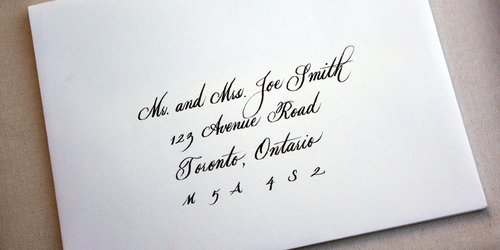 Mr. and Mrs. Joe Smith
123 Avenue Road
Toronto, Ontario
M 5 A 4 S 2